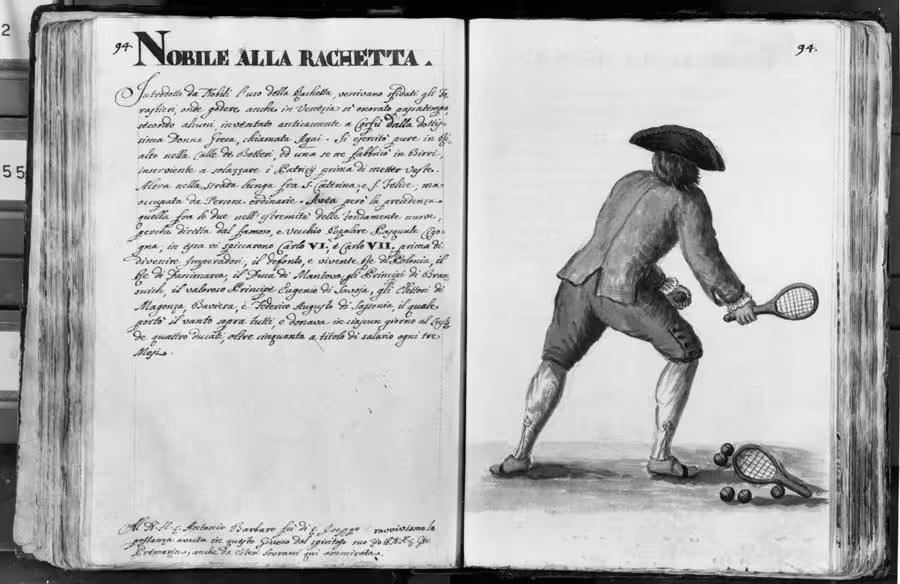 94.
NOBILE ALLA RACHETTA.
Introdotto da Nobili l'uso della Rachetta, venivano sfidati gli Fo-
rastieri, onde godere anche in Venezia sì onorato passatempo,
secondo alcuni inventato anticamente a Corfù dalla dottis-
sima Donna Greca, chiamata Agai. Si esercitò pure in Ri-
alto nella Calle de Botteri, ed una se ne fabbricò in Birri,
inserviente a solazzare i Patrizj prima di metter Veste.
Altra nella strada lunga fra S. Caterina, e S. Felice, ma
occupata da Persone ordinarie. Aveta però la precedenza
quella fra le due nell'estremità delle Fondamente nuove,
perche diretta dal famoso, e vecchio Regolare Pasquale Cigo-
gna, in essa vi spiccarono Carlo VI. e Carlo VII. prima di
divenire Imperadori, il defonto, e vivente Re di Polonia, il
Re di Danimarca, il Duca di Mantova, gli Principi di Bran-
suich, il valoroso Principe Eugenio di Savoja, gli Elettori di
Magonza, Baviera, e Federico Augusto di Sassonia, il quale
portò il vanto sopra tutti, e donava in ciascun giorno al
de quattro ducati, oltre cinquanta a titolo di salario ogni tre
Mesi.
Al Antonio Barbaro fù di ravviviamo la
possanza avuta in questo Giuoco dal spiritoso suo
anche da esteri Sovrani qui ammirata.
94.